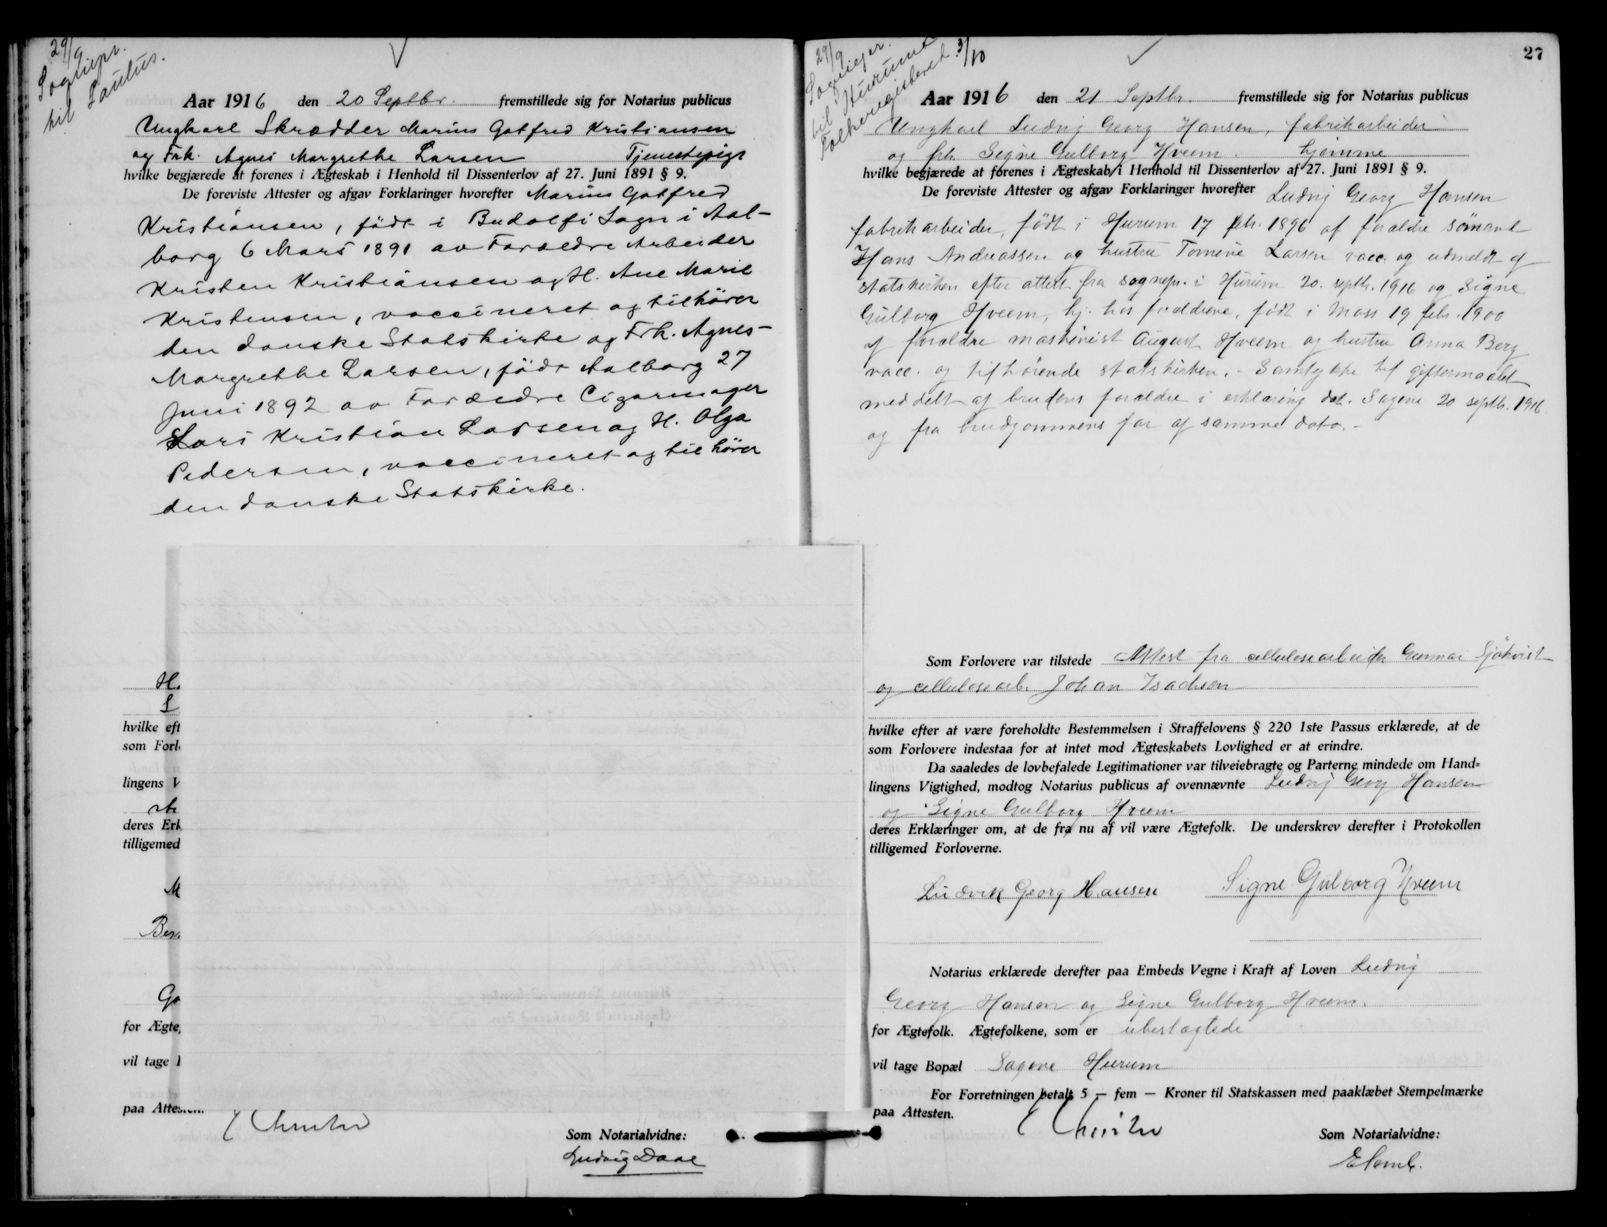 29/9
Sogнepr.
til Paulus.
Aar 1916 den 20 Septbr. fremstillede sig for Notarius publicus
Ungkarl Skrædder Marius Gotfred Kristiansen
og Frk. Agnes Margrethe Larsen Tjenestepige
hvilke begjærede at forenes i Ægteskab i Henhold til Dissenterlov af 27. Juni 1891 § 9.
De foreviste Attester og afgav Forklaringer hvorefter Marius Gotfred
Kristiansen, født i Budolfi Sogn i Aal-
borg 6 Mars 1891 av Forældre Arbeider
Kristen Kristiansen og H. Ane Marie
Kristensen, vaccineret og tilhører
den danske Statskirke og Frk. Agnes
Margrethe Larsen, født Aalborg 27
Juni 1892 av Forældre Cigarmager
Lars Kristian Larsen og H. Olga
Pedersen, vaccineret og tilhører
den danske Statskirke.
H.
S
hvilke eft
som Forl
lingens V
deres Erk
tilligemed
M
Ber
Go
for Ægte
vil tage
paa Attesten.
Som Notarialvidne:
Ludvig Daae
27
29/9
Sogнepr.
til Hurum
Folkeregisteret 3/10
Aar 1916 den 21 Septbr. fremstillede sig for Notarius publicus
Ungkarl Ludvig Georg Hansen, fabrikarbeider
og frk. Signe Gulborg Hveem. hjemme
hvilke begjærede at forenes i Ægteskab i Henhold til Dissenterlov af 27. Juni 1891 § 9.
De foreviste Attester og afgav Forklaringer hvorefter Ludvig Georg Hansen
fabrikarbeider, født i Hurum 17 febr. 1896 af forældre sømand
Hans Andreassen og hustru Tomine Larsen vacc. og utmeldt af
statskirken efter attest fra sognepr. i Hurum 20. septbr. 1916 og Signe
Gulborg Hveem, hj. hos forældrene, født i Moss 19 febr. 1900
af forældre maskinist August Hveem og hustru Anna Berg
vacc. og tilhørende statskirken. - Samtykke til giftermaalet
meddelt af brudens forældre i erklæring dat. Sagene 20 septbr. 1916
og fra brudgommens far af samme dato. -
Som Forlovere var tilstede Attest fra cellulosearbeider Gunnar Sjökvist
og cellulosearb. Johan Isachsen
hvilke efter at være foreholdte Bestemmelsen i Straffelovens § 220 1ste Passus erklærede, at de
som Forlovere indestaa for at intet mod Ægteskabets Lovlighed er at erindre.
Da saaledes de lovbefalede Legitimationer var tilveiebragte og Parterne mindede om Hand=
lingens Vigtighed, modtog Notarius publicus af ovennævnte Ludvig Georg Hansen
og Signe Gulborg Hveem
deres Erklæringer om, at de fra nu af vil være Ægtefolk. De underskrev derefter i Protokollen
tilligemed Forloverne.
Ludvik Georg Hansen Signe Gulborg Hveem
Notarius erklærede derefter paa Embeds Vegne i Kraft af Loven Ludvig
Georg Hansen og Signe Gulborg Hveem.
for Ægtefolk. Ægtefolkene, som er ubeslægtede
vil tage Bopæl Sagene Hurum
For Forretningen betalt 5 — fem — Kroner til Statskassen med paaklæbet Stempelmærke
paa Attesten.
Som Notarialvidne: